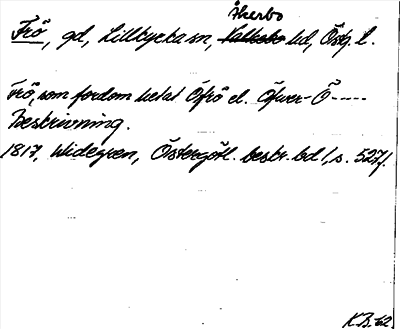 Åkerbo
Frö, gd, Lillkyrka sn, Valkebo hd, Östg. l.
Frö, som fordom hetat Ofrö el. Öfver-Ö-----
Beskrivning.
1817, Widegren, Östergötl. beskr. bd 1, s. 527f.
K.B. 62